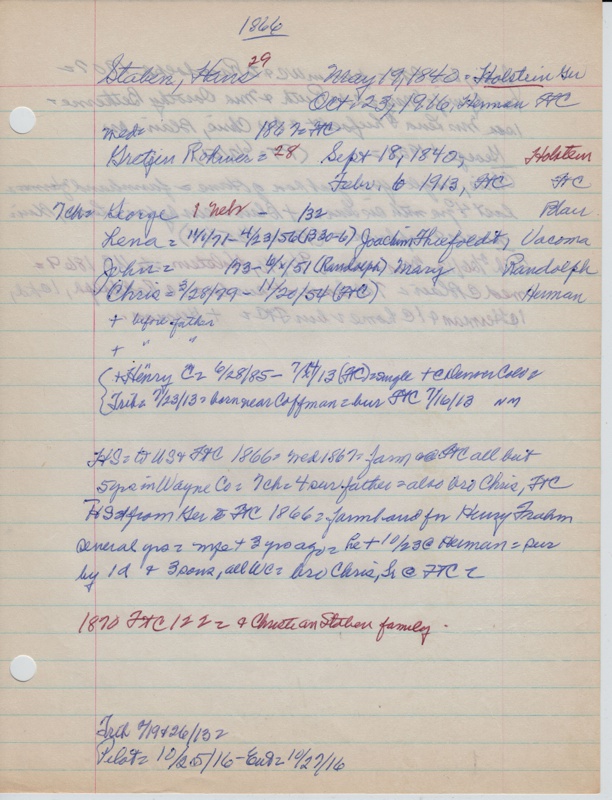 1866
Staben, Hans 29 May 19, 1840 = Holstein Ger
Oct 23, 1916, Herman FtC
med= 1867 = FtC
Gretjen Rohwer = 28 Sept 18, 1840, Holstein
Febr. 6 1913, FtC FtC
7ch= George 1 Nebr - /32 Blair
Lena = 11/1/71 - 4/23/56 (B30-6) Joachim Thiefoldt, Vacoma
John = /73 - /51 (Randolph) Mary Randolph
Chris = 3/28/79 - 11/20/54 (FtC) Herman
+ before father
+ " "
+ Henry C = 6/28/85 - 7/14/13 (FtC) = single + C Denver Colo =
Trib = 7/23/13 = born near Coffman = bur FtC 7/16/13 nm
HS = to US & FtC 1866 = med 1867 = farm FtC all but
5 yrs in Wayne Co = 7ch = 4 sur father = also bro Chris, FtC
HS from Ger to FtC 1866 = farmhand for Henry Frahm
several yrs = mrs + 3 yrs ago = he + 10/23 @ Herman = sur
by 1d & 3 sons, all WC = bro Chris, Sr @ FtC =
1870 FtC 122 = & Christian Staben family.
Trib 2/19 & 26/13 =
Pilot = 10/25/16 - Ent = 10/27/16